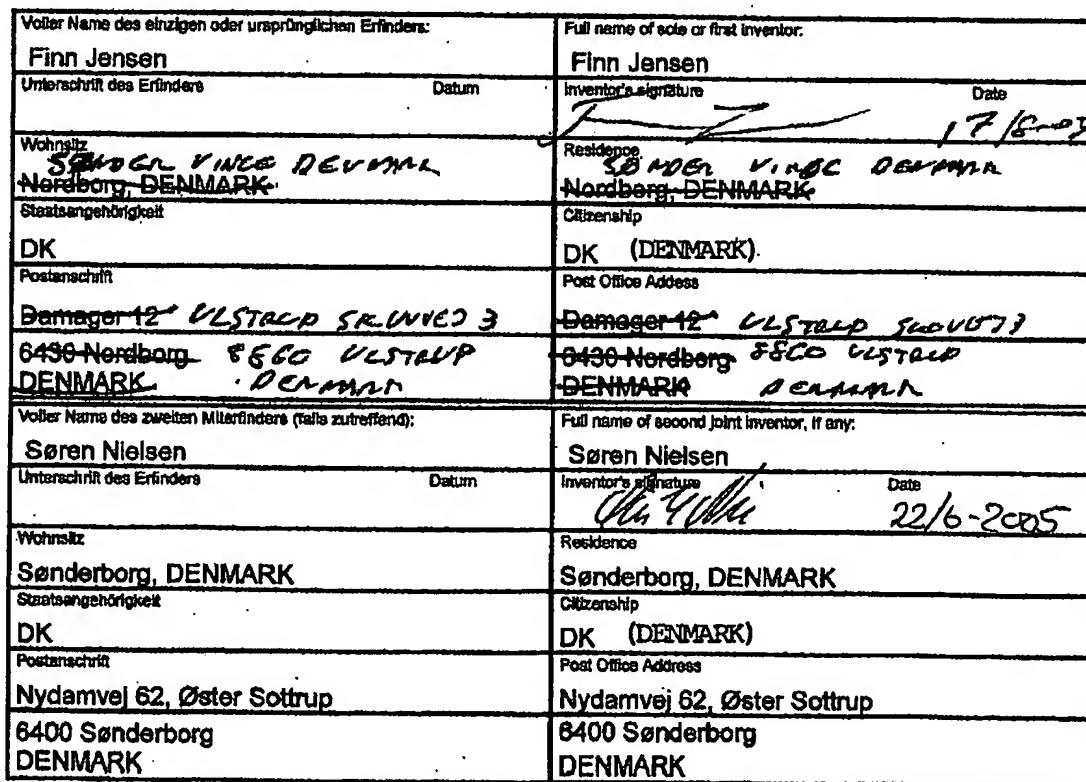 Voller Name des einzigen oder ursprünglichen Erfinders:
Finn Jensen
Unterschrift des Erfinders Datum
Wohnsitz
SØNDER VINGE DENMARK
Nordborg, DENMARK
Staatsangehörigkeit
DK
Postanschrift
Damager 12 ULSTRUP 3
6430 Nordborg 8860 ULSTRUP
DENMARK DENMARK
Voller Name des zweiten Miterfinders (falls zutreffend):
Søren Nielsen
Unterschrift des Erfinders Datum
Wohnsitz
Sønderborg, DENMARK
Staatsangehörigkeit
DK
Postanschrift
Nydamvej 62, Øster Sottrup
6400 Sønderborg
DENMARK
Full name of sole or first inventor:
Finn Jensen
Inventor's signature Date
Residence
SØNDER VINGE DENMARK
Nordborg, DENMARK
Citizenship
DK (DENMARK).
Post Office Addess
Damager 12 ULSTRUP
6430 Nordborg 8860 ULSTRUP
DENMARK DENMARK
Full name of second joint inventor, if any:
Søren Nielsen
Inventor's signature Date
22/6-2005
Residence
Sønderborg, DENMARK
Citizenship
DK (DENMARK)
Post Office Address
Nydamvej 62, Øster Sottrup
6400 Sønderborg
DENMARK